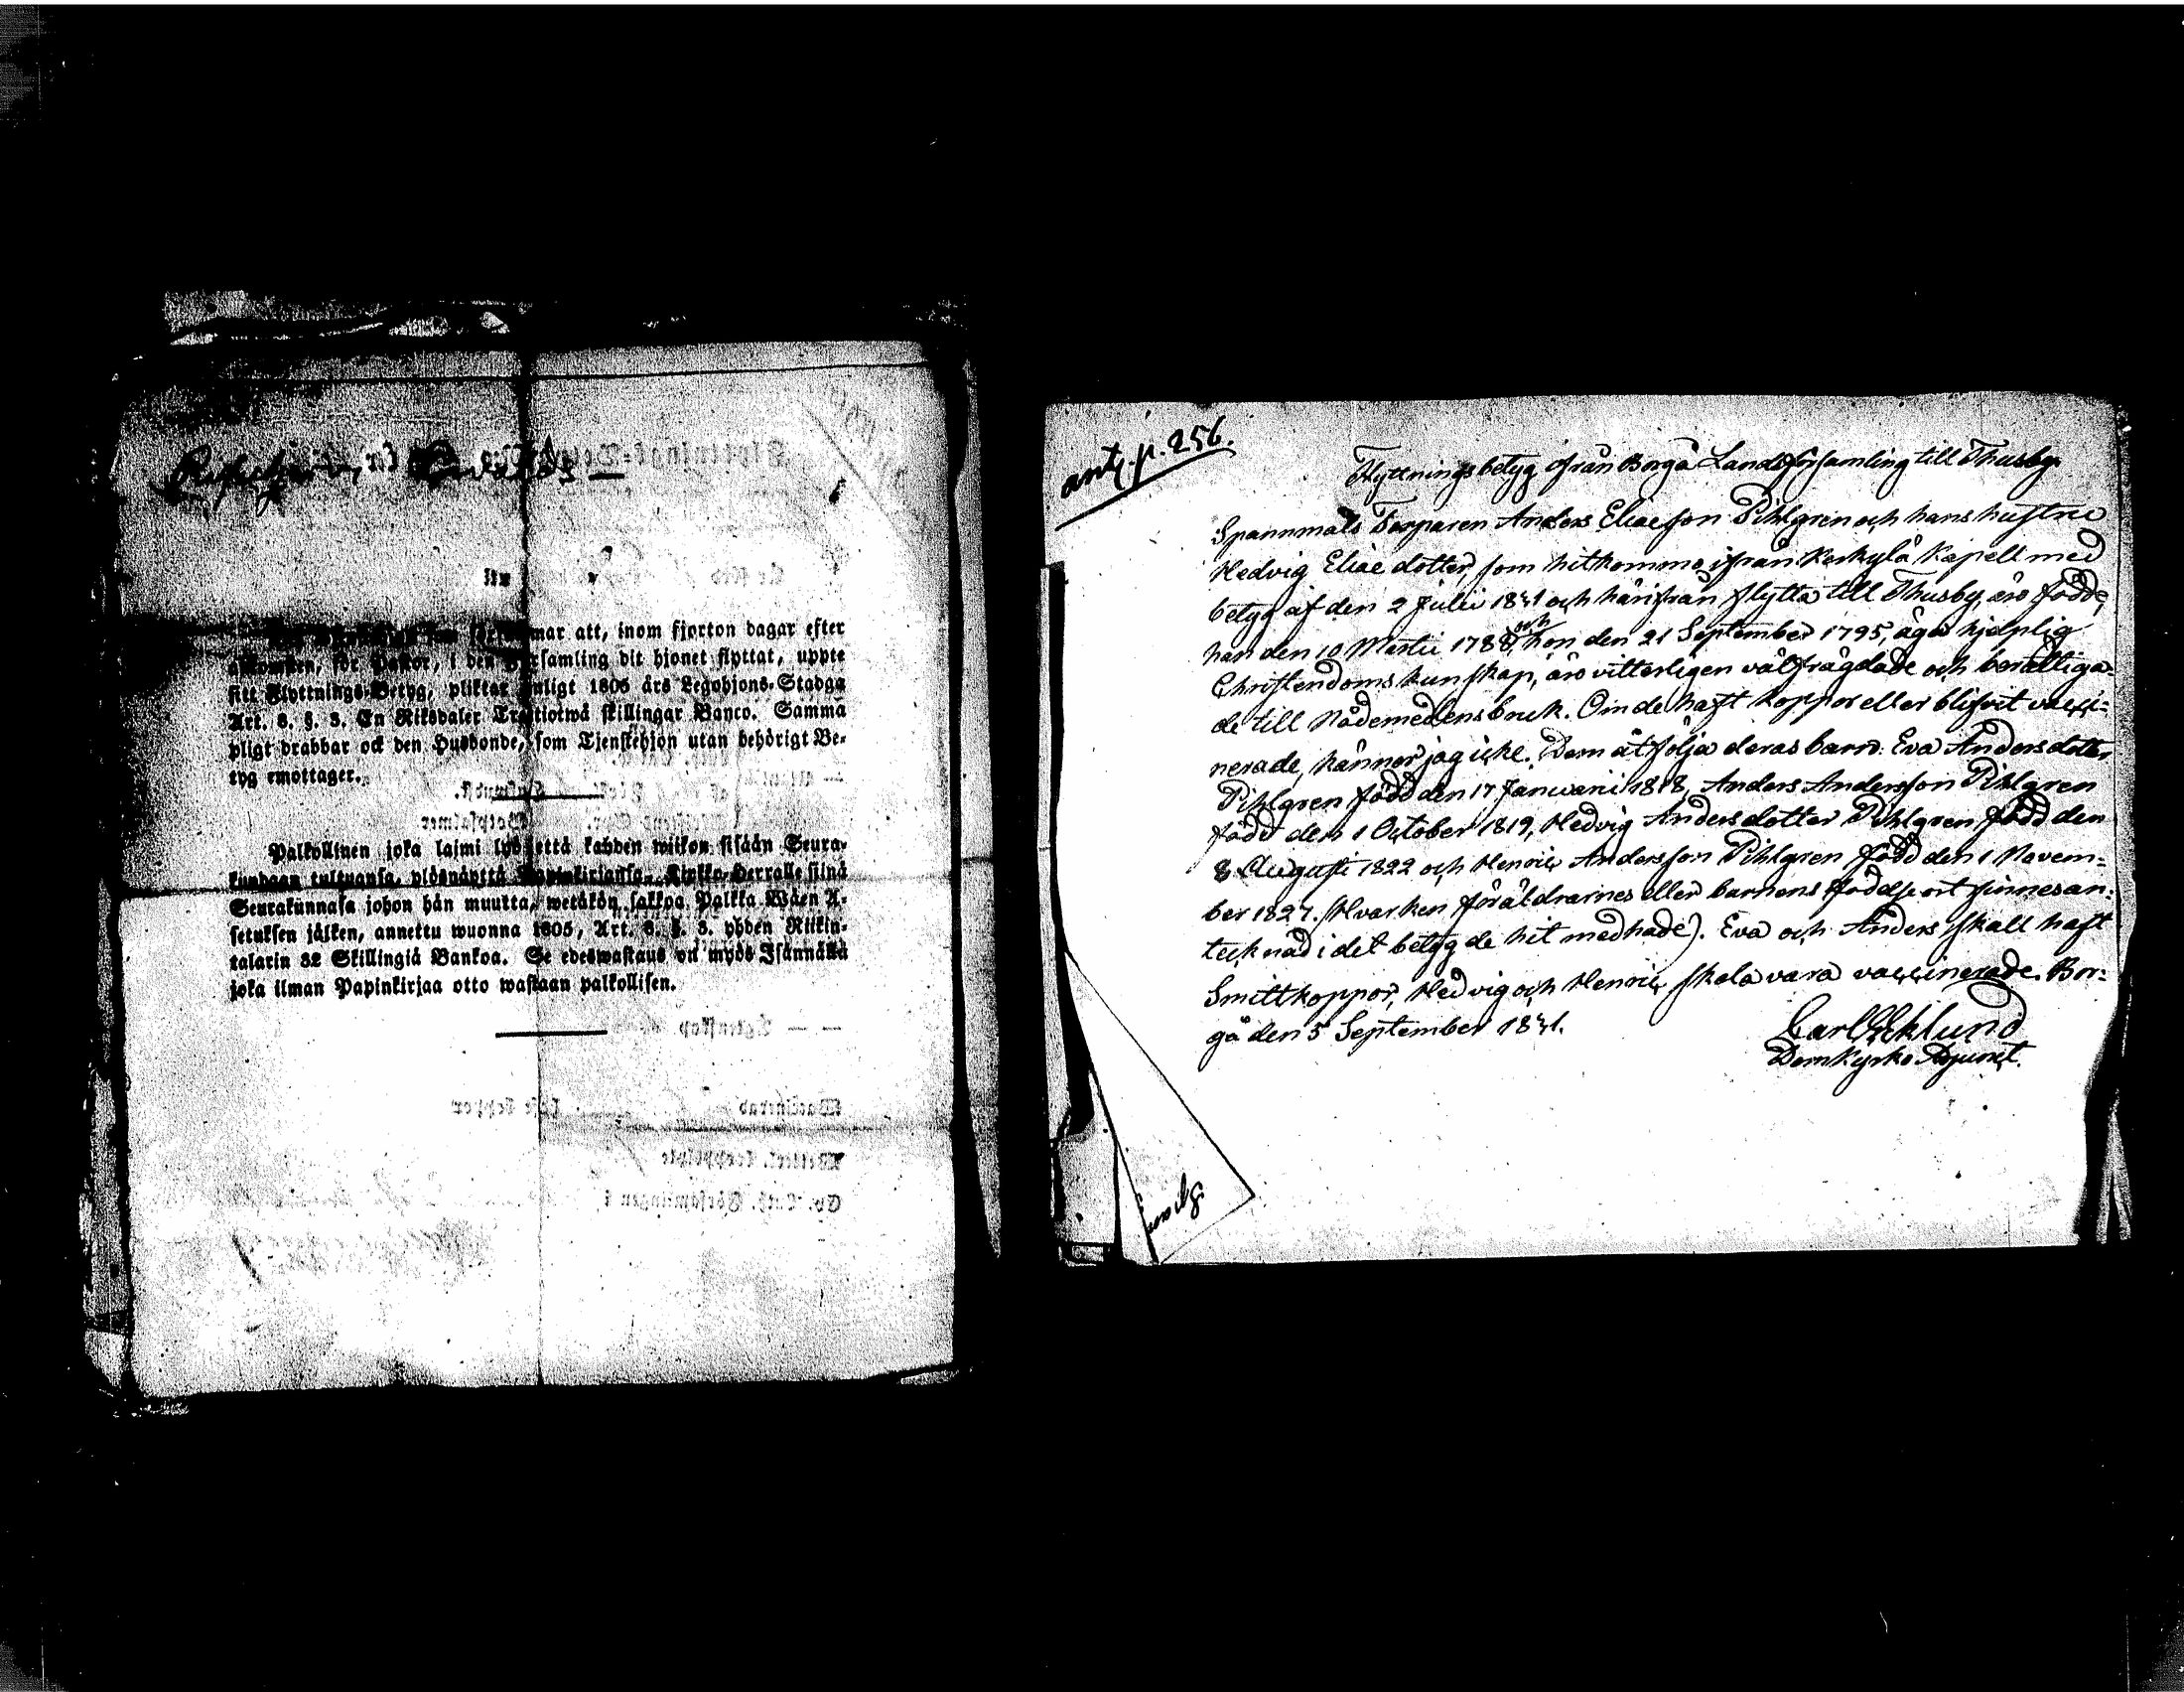 mar att, inom fjorton dagar efter
ankomsten, för Pastor, i den Församling dit hjonet flyttat, uppte
sitt Flyttnings-Betyg, pliktar enligt 1805 års Legohjons-Stadga
Art. 8. §. 3. En Riksdaler Trettiotwå skillingar Banco. Samma
pligt drabbar ock den Husbonde, som Tjenstehjon utan behörigt Be-
tyg emottager.
Palkollinen joka laimi lyö että kahden wiikon sisään Seura-
kundaan tultuansa, ylösnäyttä Papinkirjansa Kirkko-Herralle siinä
Seurakunnasa johon hän muutta, wetäkön sakkoa Palkka Wäen A-
setuksen jälken, annettu wuonna 1805, Art. 8. §. 3. yhden Riikin-
talarin 32 Skillingiä Bankoa. Se edeswastaus on myös Isännällä
joka ilman Papinkirjaa otto wastaan palkollisen.
ant. p. 256.
Flyttningsbetyg ifrån Borgå Landsförsamling till Thusby.
Spannmåls Torparen Anders Eliaeson Pihlgren och hans hustru
Hedvig Eliae dotter, som hitkommo ifrån Kerkylä Kapell med
betyg af den 2 Julii 1841 och härifrån flytta till Thusby, äro födde,
han den 10 Martii 1788, och hon den 21 September 1795, äga hjelplig
Christendoms kunskap, äro vitterligen välfrägdade och berättiga-
de till Nådemedlens bruk. Om de haft koppor eller blifvit vacci-
nerade, känner jag icke. Dem åtfölja deras barn: Eva Andersdotter
Pihlgren född den 17 Januarii 1818, Anders Andersson Pihlgren
född den 1 October 1819, Hedvig Andersdotter Pihlgren född den
8 Augusti 1822 och Henric Andersson Pihlgren född den 1 Novem-
ber 1827. (Hvarken föräldrarnes eller barnens födelseort finnes an-
tecknad i det betyg de hit medhade). Eva och Anders skall haft
Smittkoppor, Hedvig och Henric skola vara vaccinerade. Bor-
gå den 5 September 1841.
Carl Eklund
Domkyrko Adjunct.